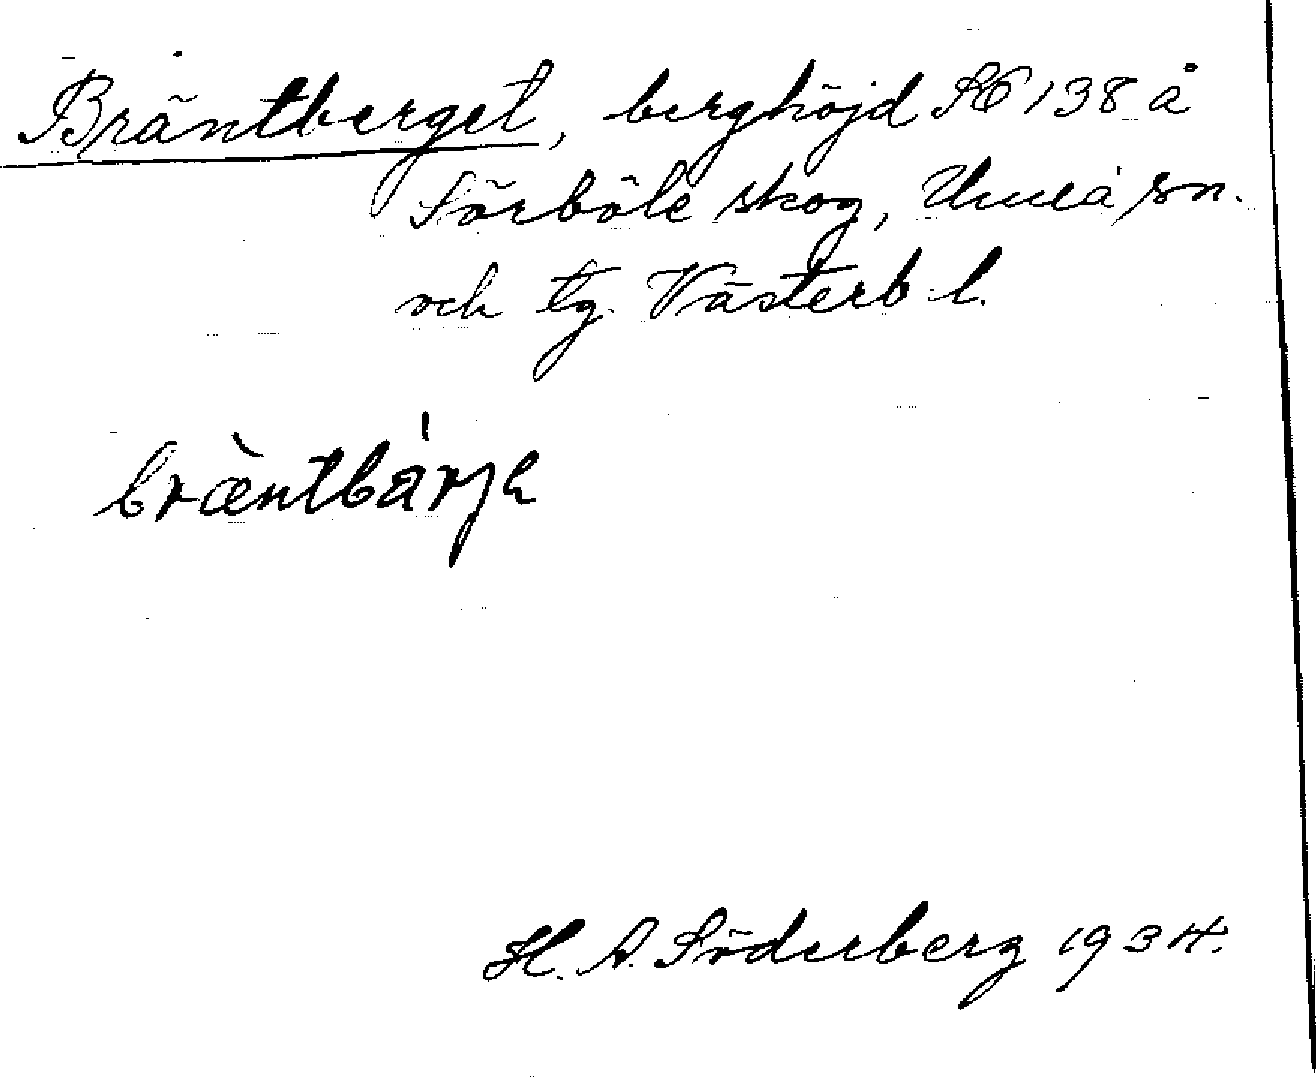 Bräntberget, berghöjd SO 138 å
Sörböle skog, Umeå sn.
och tg. Västerb l.
bræ̀ntbárje
H. A. Söderberg 1934.